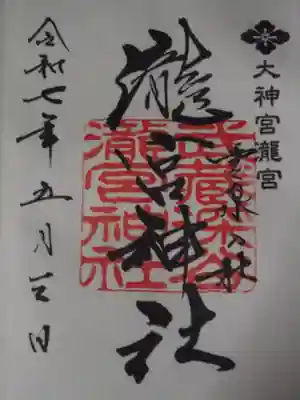 大神宮瀧宮
瀧宮神社
武藏深谷
瀧宮神社
令和七年五月三日